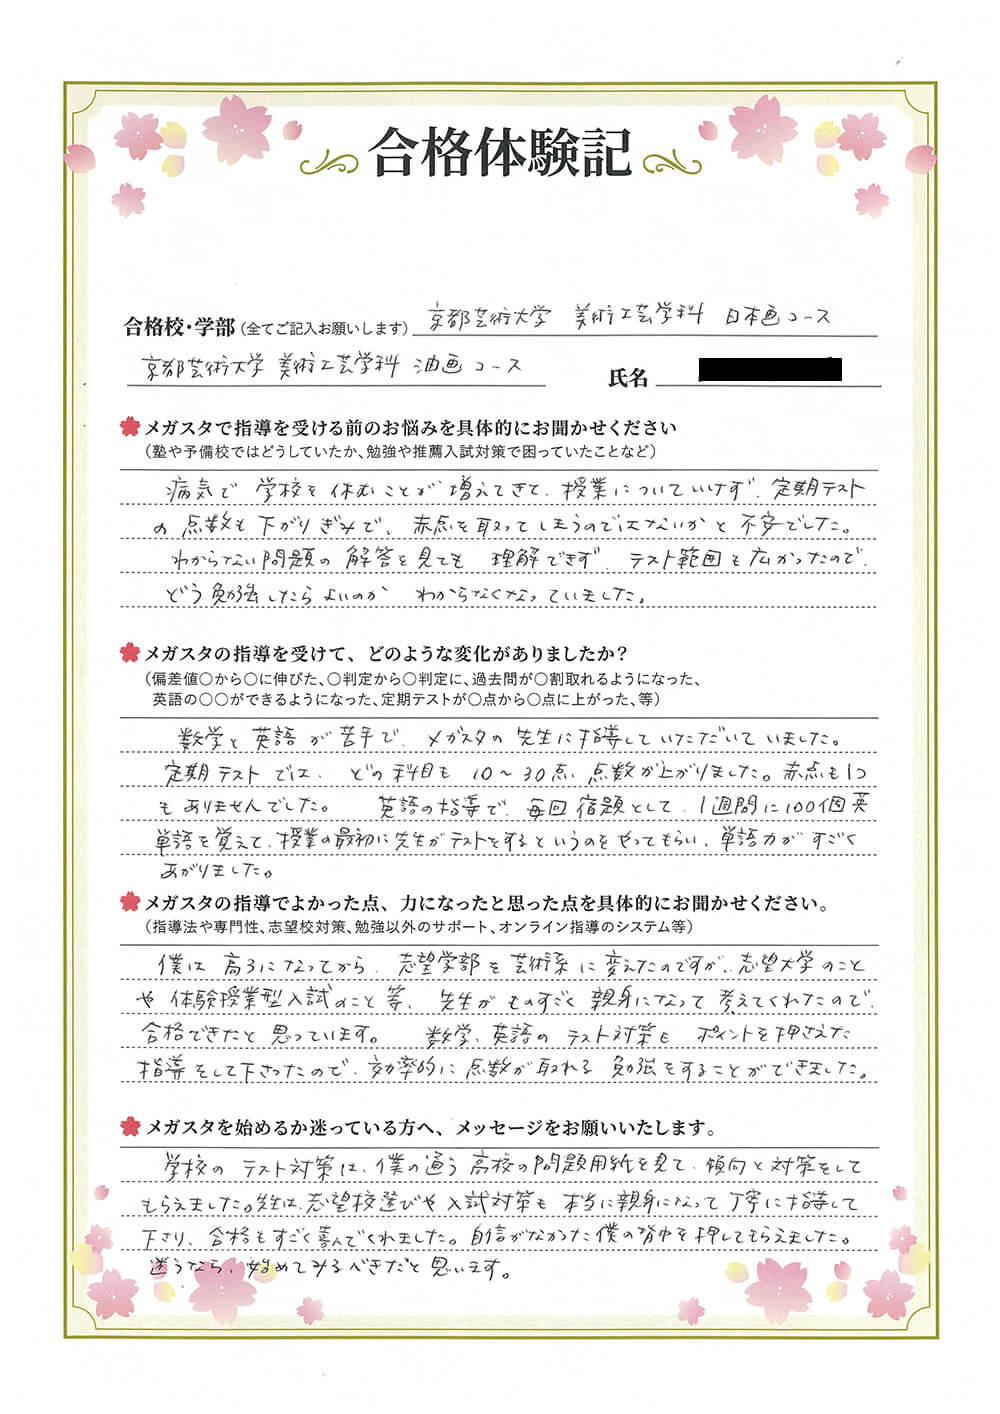 合格体験記
合格校・学部（全てご記入お願いします） 京都芸術大学 美術工芸学科 日本画コース
京都芸術大学 美術工芸学科 油画コース 氏名
メガスタで指導を受ける前のお悩みを具体的にお聞かせください
（塾や予備校ではどうしていたか、勉強や推薦入試対策で困っていたことなど）
病気で学校を休むことが増えてきて、授業についていけず、定期テスト
の点数も下がりぎみで、赤点を取ってしまうのではないかと不安でした。
わからない問題の解答を見ても理解できず、テスト範囲も広かったので、
どう勉強したらよいのか わからなくなっていました。
メガスタの指導を受けて、どのような変化がありましたか？
（偏差値○から○に伸びた、○判定から○判定に、過去問が○割取れるようになった、
英語の○○ができるようになった、定期テストが○点から○点に上がった、等）
数学と英語が苦手で、メガスタの先生に指導していただいていました。
定期テストでは、どの科目も10～30点、点数が上がりました。赤点も1つ
もありませんでした。 英語の指導で、毎回宿題として、1週間に100個英
単語を覚えて、授業の最初に先生がテストをするというのをやってもらい、単語力がすごく
あがりました。
メガスタの指導でよかった点、力になったと思った点を具体的にお聞かせください。
（指導法や専門性、志望校対策、勉強以外のサポート、オンライン指導のシステム等）
僕は高3になってから、志望学部を芸術系に変えたのですが、志望大学のこと
や体験授業型入試のこと等、先生がものすごく親身になって考えてくれたので、
合格できたと思っています。 数学、英語のテスト対策もポイントを押さえた
指導をして下さったので、効率的に点数が取れる勉強をすることができました。
メガスタを始めるか迷っている方へ、メッセージをお願いいたします。
学校のテスト対策は、僕の通う高校の問題用紙を見て、傾向と対策をして
もらえました。先生は、志望校選びや入試対策も本当に親身になって丁寧に指導して
下さり、合格もすごく喜んでくれました。自信がなかった僕の背中を押してもらえました。
迷うなら、始めてみるべきだと思います。